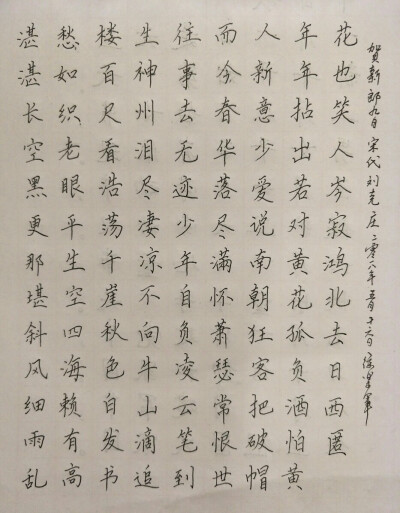 湛湛长空黑更那堪斜风细雨乱
愁如织老眼平生空四海赖有高
楼百尺看浩荡千崖秋色白发书
生神州泪尽凄凉不向牛山滴追
往事去无迹少年自负凌云笔到
而今春华落尽满怀萧瑟常恨世
人新意少爱说南朝狂客把破帽
年年拈出若对黄花孤负酒怕黄
花也笑人岑寂鸿北去日西匿
贺新郎九日 宋代刘克庄 二零一八年五月十六日